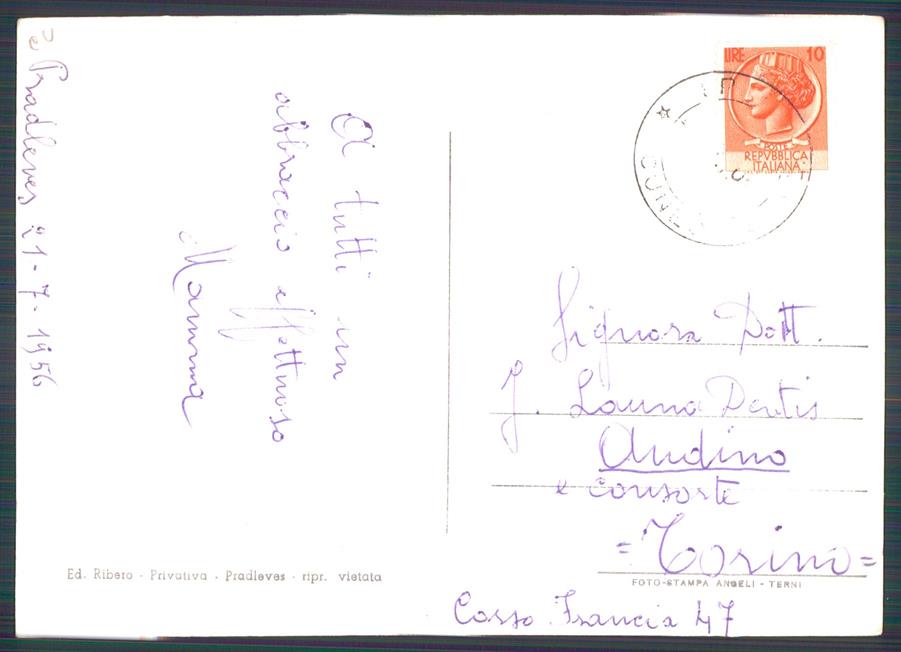 Pradleves 21-7-1956
A tutti un
abbraccio affettuoso
Mamma
LIRE 10
POSTE
REPVBBLICA
ITALIANA
CUNEO
Signora Dott.
J. Launa Dentis
Audino
e consorte
=Torino=
Corso Francia 47
Ed. Ribero - Privativa - Pradleves - ripr. vietata
FOTO-STAMPA ANGELI - TERNI